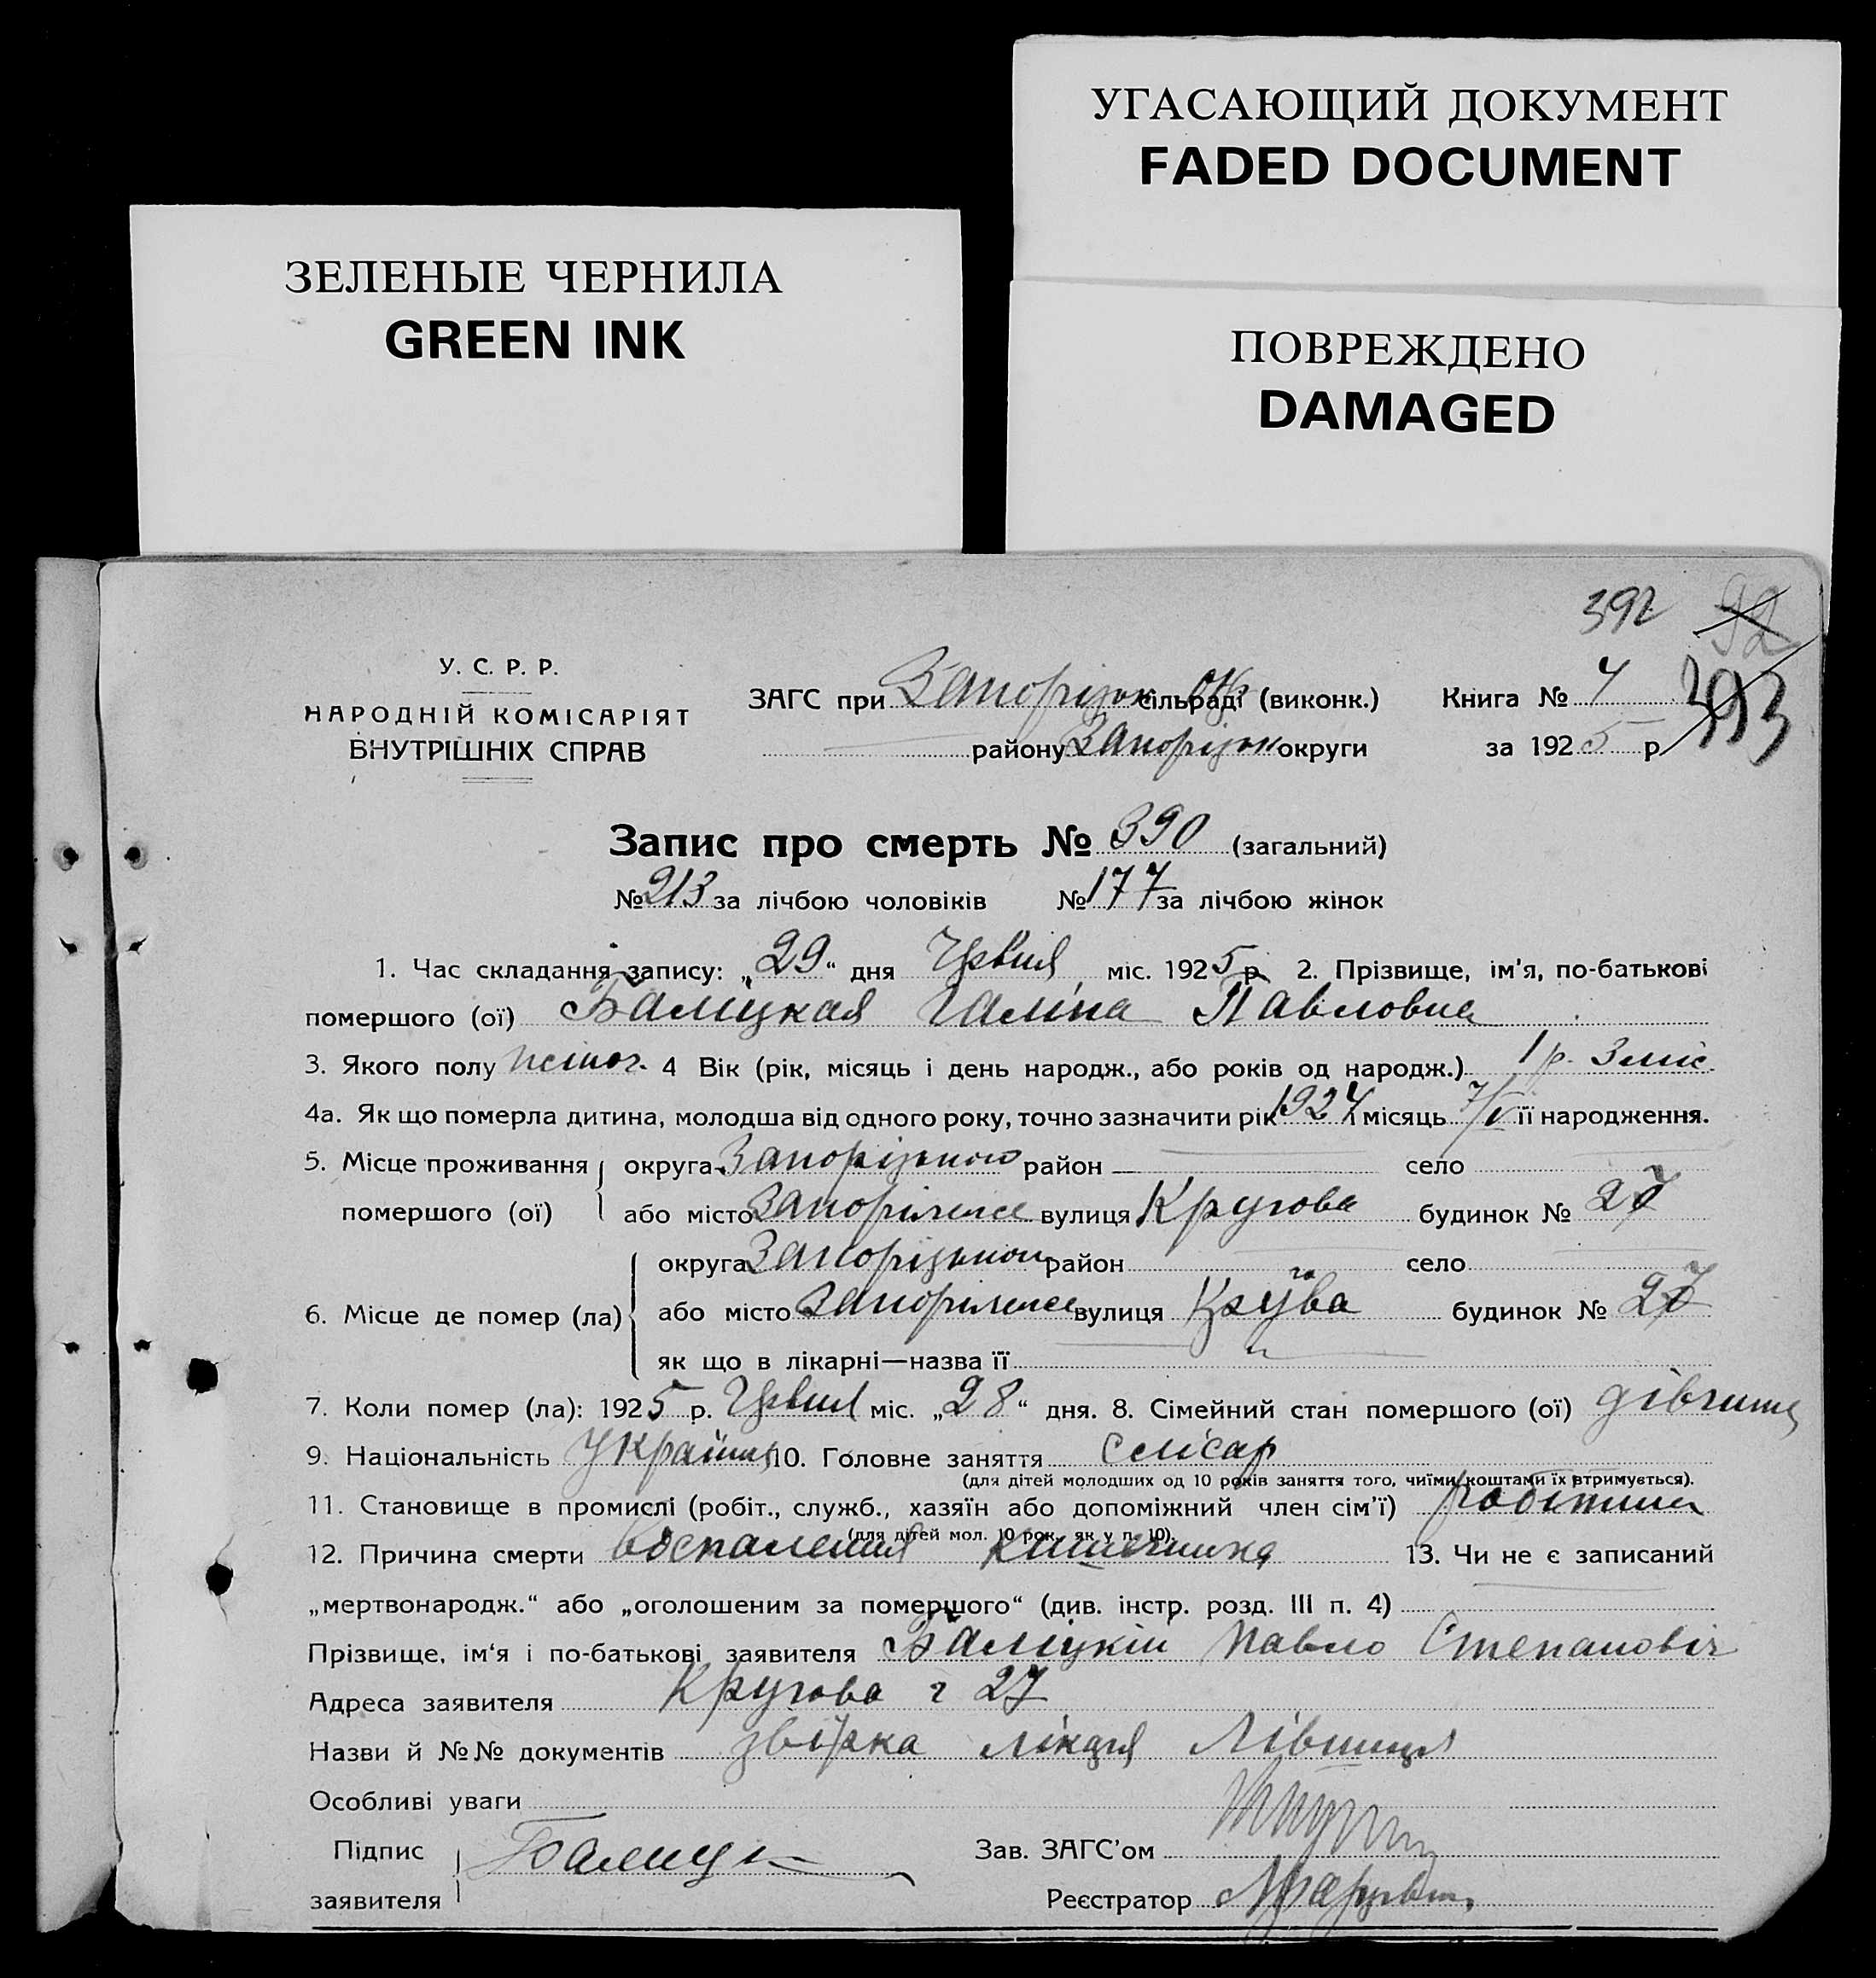 УГАСАЮЩИЙ ДОКУМЕНТ
FADED DOCUMENT
ЗЕЛЕНЫЕ ЧЕРНИЛА
GREEN INK
ПОВРЕЖДЕНО
DAMAGED
392 92
У. С. Р. Р.
НАРОДНІЙ КОМІСАРІЯТ
ВНУТРІШНІХ СПРАВ
ЗАГС при Запорізьк сільраді окр (виконк.) Книга № 4 393
району Запорізьк округи за 1925 р
Запис про смерть № 390 (загальний)
№ 213 за лічбою чоловіків № 177 за лічбою жінок
1. Час складання запису: „29“ дня Червня міс. 1925 р. 2. Прізвище, ім'я, по-батькові
помершого (ої) Баліцкая Галіна Павловна
3. Якого полу жіноч. 4 Вік (рік, місяць і день народж., або років од народж.) 1 р. 3 міс.
4а. Як що померла дитина, молодша від одного року, точно зазначити рік 1924 і місяць 7/IV її народження.
5. Місце проживання округа Запорізькою район село
помершого (ої) або місто Запоріжжє вулиця Кругова будинок № 27
округа Запорізькою район село
6. Місце де помер (ла) або місто Запоріжжє вулиця Кругова будинок № 27
як що в лікарні—назва її
7. Коли помер (ла): 1925 р. Червня міс. „28“ дня. 8. Сімейний стан помершого (ої) дівчина
9. Національність Україн. 10. Головне заняття слісар
(для дітей молодших од 10 років заняття того, чиїми коштами їх втримується).
11. Становище в промислі (робіт., служб., хазяїн або допоміжний член сім'ї) робітник
(для дітей мол. 10 рок. як у п. 10).
12. Причина смерти воспаления кишечника 13. Чи не є записаний
„мертвонародж.“ або „оголошеним за помершого“ (див. інстр. розд. III п. 4)
Прізвище, ім'я і по-батькові заявителя Баліцкій Павло Степановіч
Адреса заявителя Кругова 2 27
Назви й №№ документів лікаря
Особливі уваги
Підпис Балицк Зав. ЗАГС'ом
заявителя Реєстратор